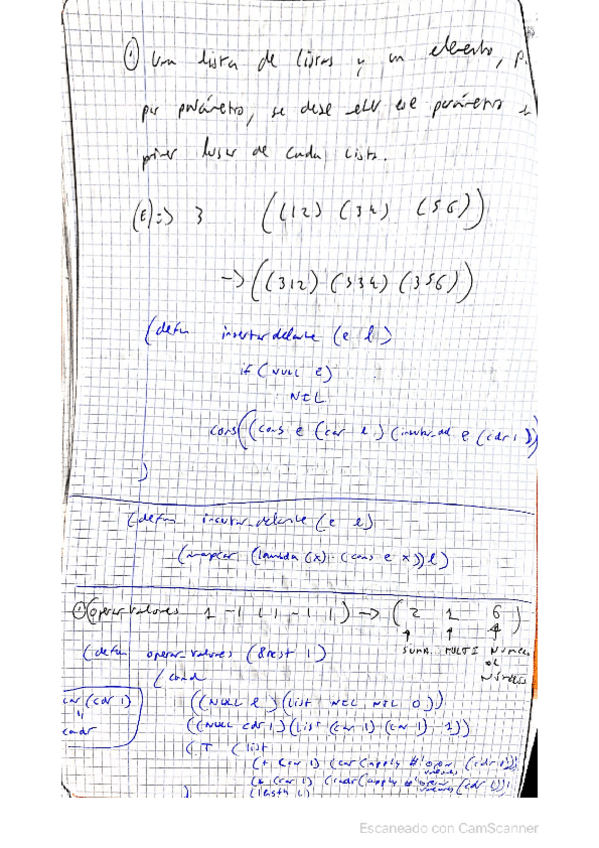 ① Una lista de listas y un elemento, p.
por parámetro, se debe ese parámetro
primer lugar de cada lista.
(E) => 3 ((12) (34) (56))
-> ((312) (334) (356))
(defun insertar delante (e l)
if (NULL e)
NIL
cons((cons e (car l)) (insertar_del e (cdr l))
)
(defun insertar delante (e l)
(mapcar (lambda (x) (cons e x)) l)
① (operar valores 1 -1 (1 -1 1) -> (2 1 6)
SUMA MULTI Numero
de
(defun operar valores (&rest l)
(cond
((NULL l) (list NIL NIL 0))
car (cdr l)
((NULL cdr l) (list (car l) (car l) 1))
cadr
(T (list
(+ (car l) (car (apply #'operar valores (cdr l)))
(* (car l) (cadr (apply #'operar valores (cdr l)))
(length l)
)
Escaneado con CamScanner